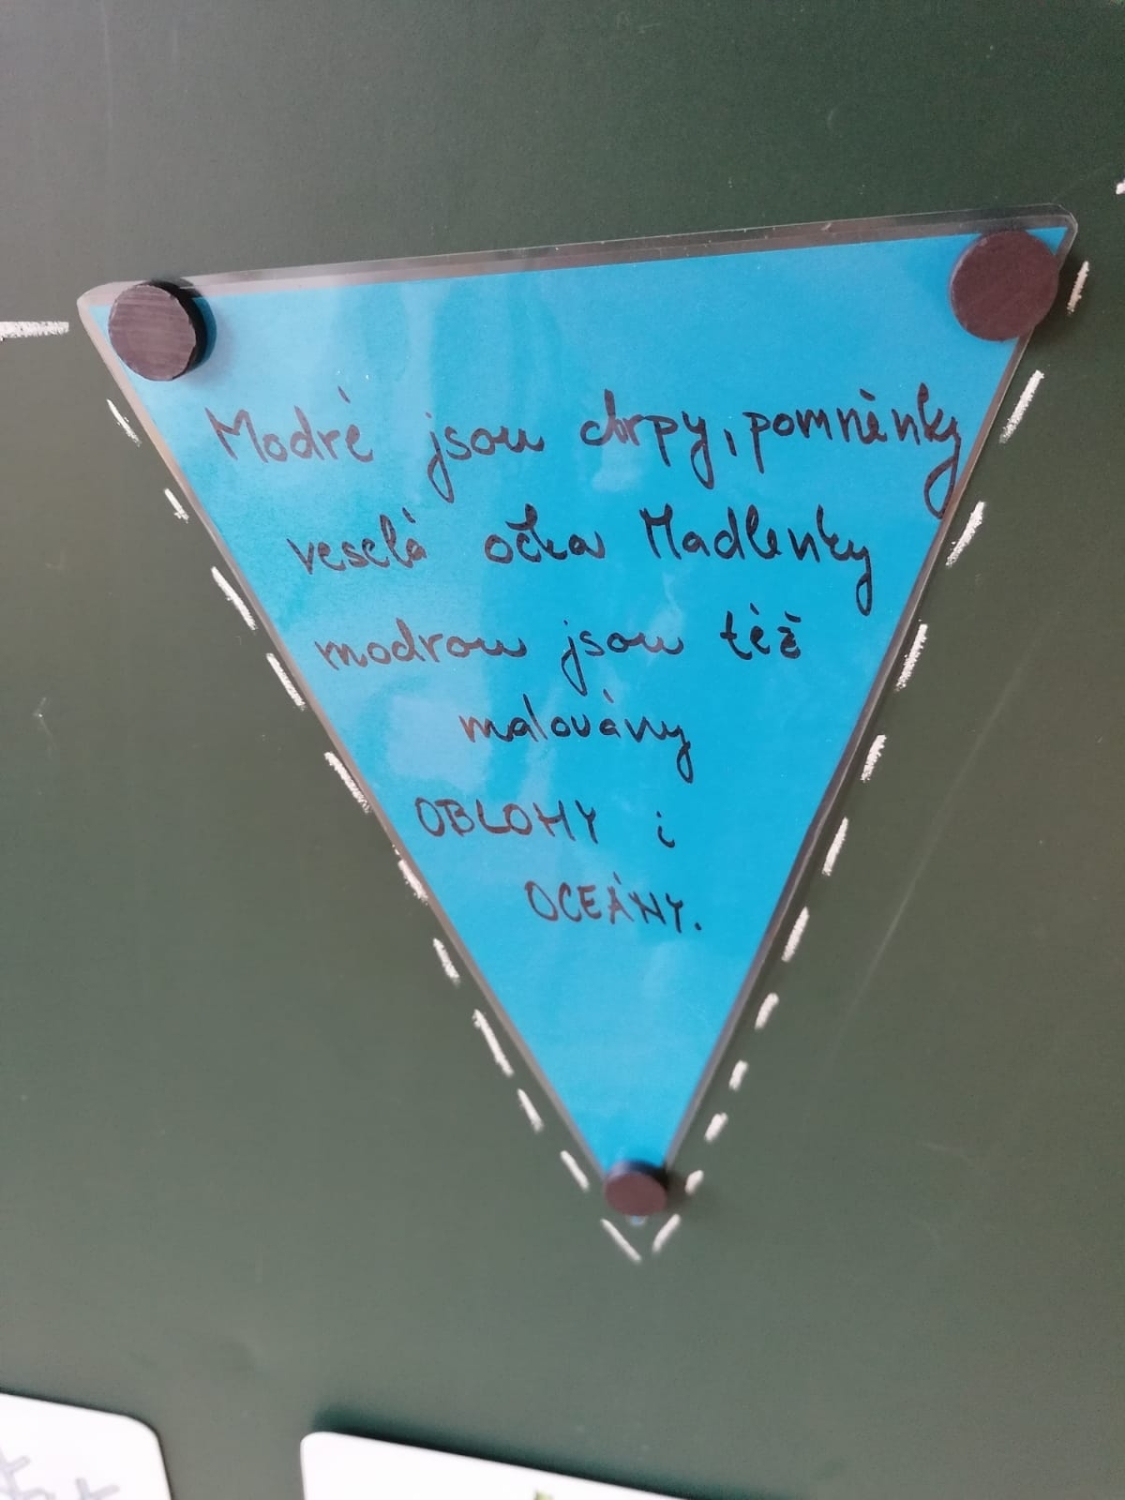 Modré jsou chrpy, pomněnky
veselá očka Madlenky
modrou jsou též
malovány
OBLOHY i
OCEÁNY.